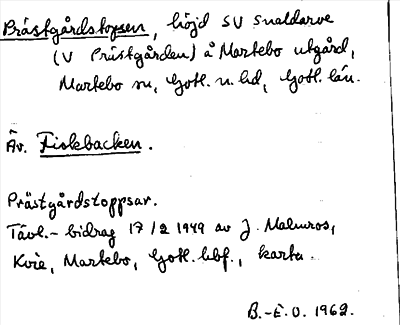 Prästgårdstopsen, höjd SV Snaldarve
(V Prästgården) å Martebo utgård,
Martebo sn, Gotl. n. hd, Gotl. län.
Äv. Fiskebacken.
Prästgårdstoppsar.
Tävl.-bidrag 17/2 1949 av J. Malmros,
Kvie, Martebo, Gotl. hbf., karta.
B.-E.O. 1962.